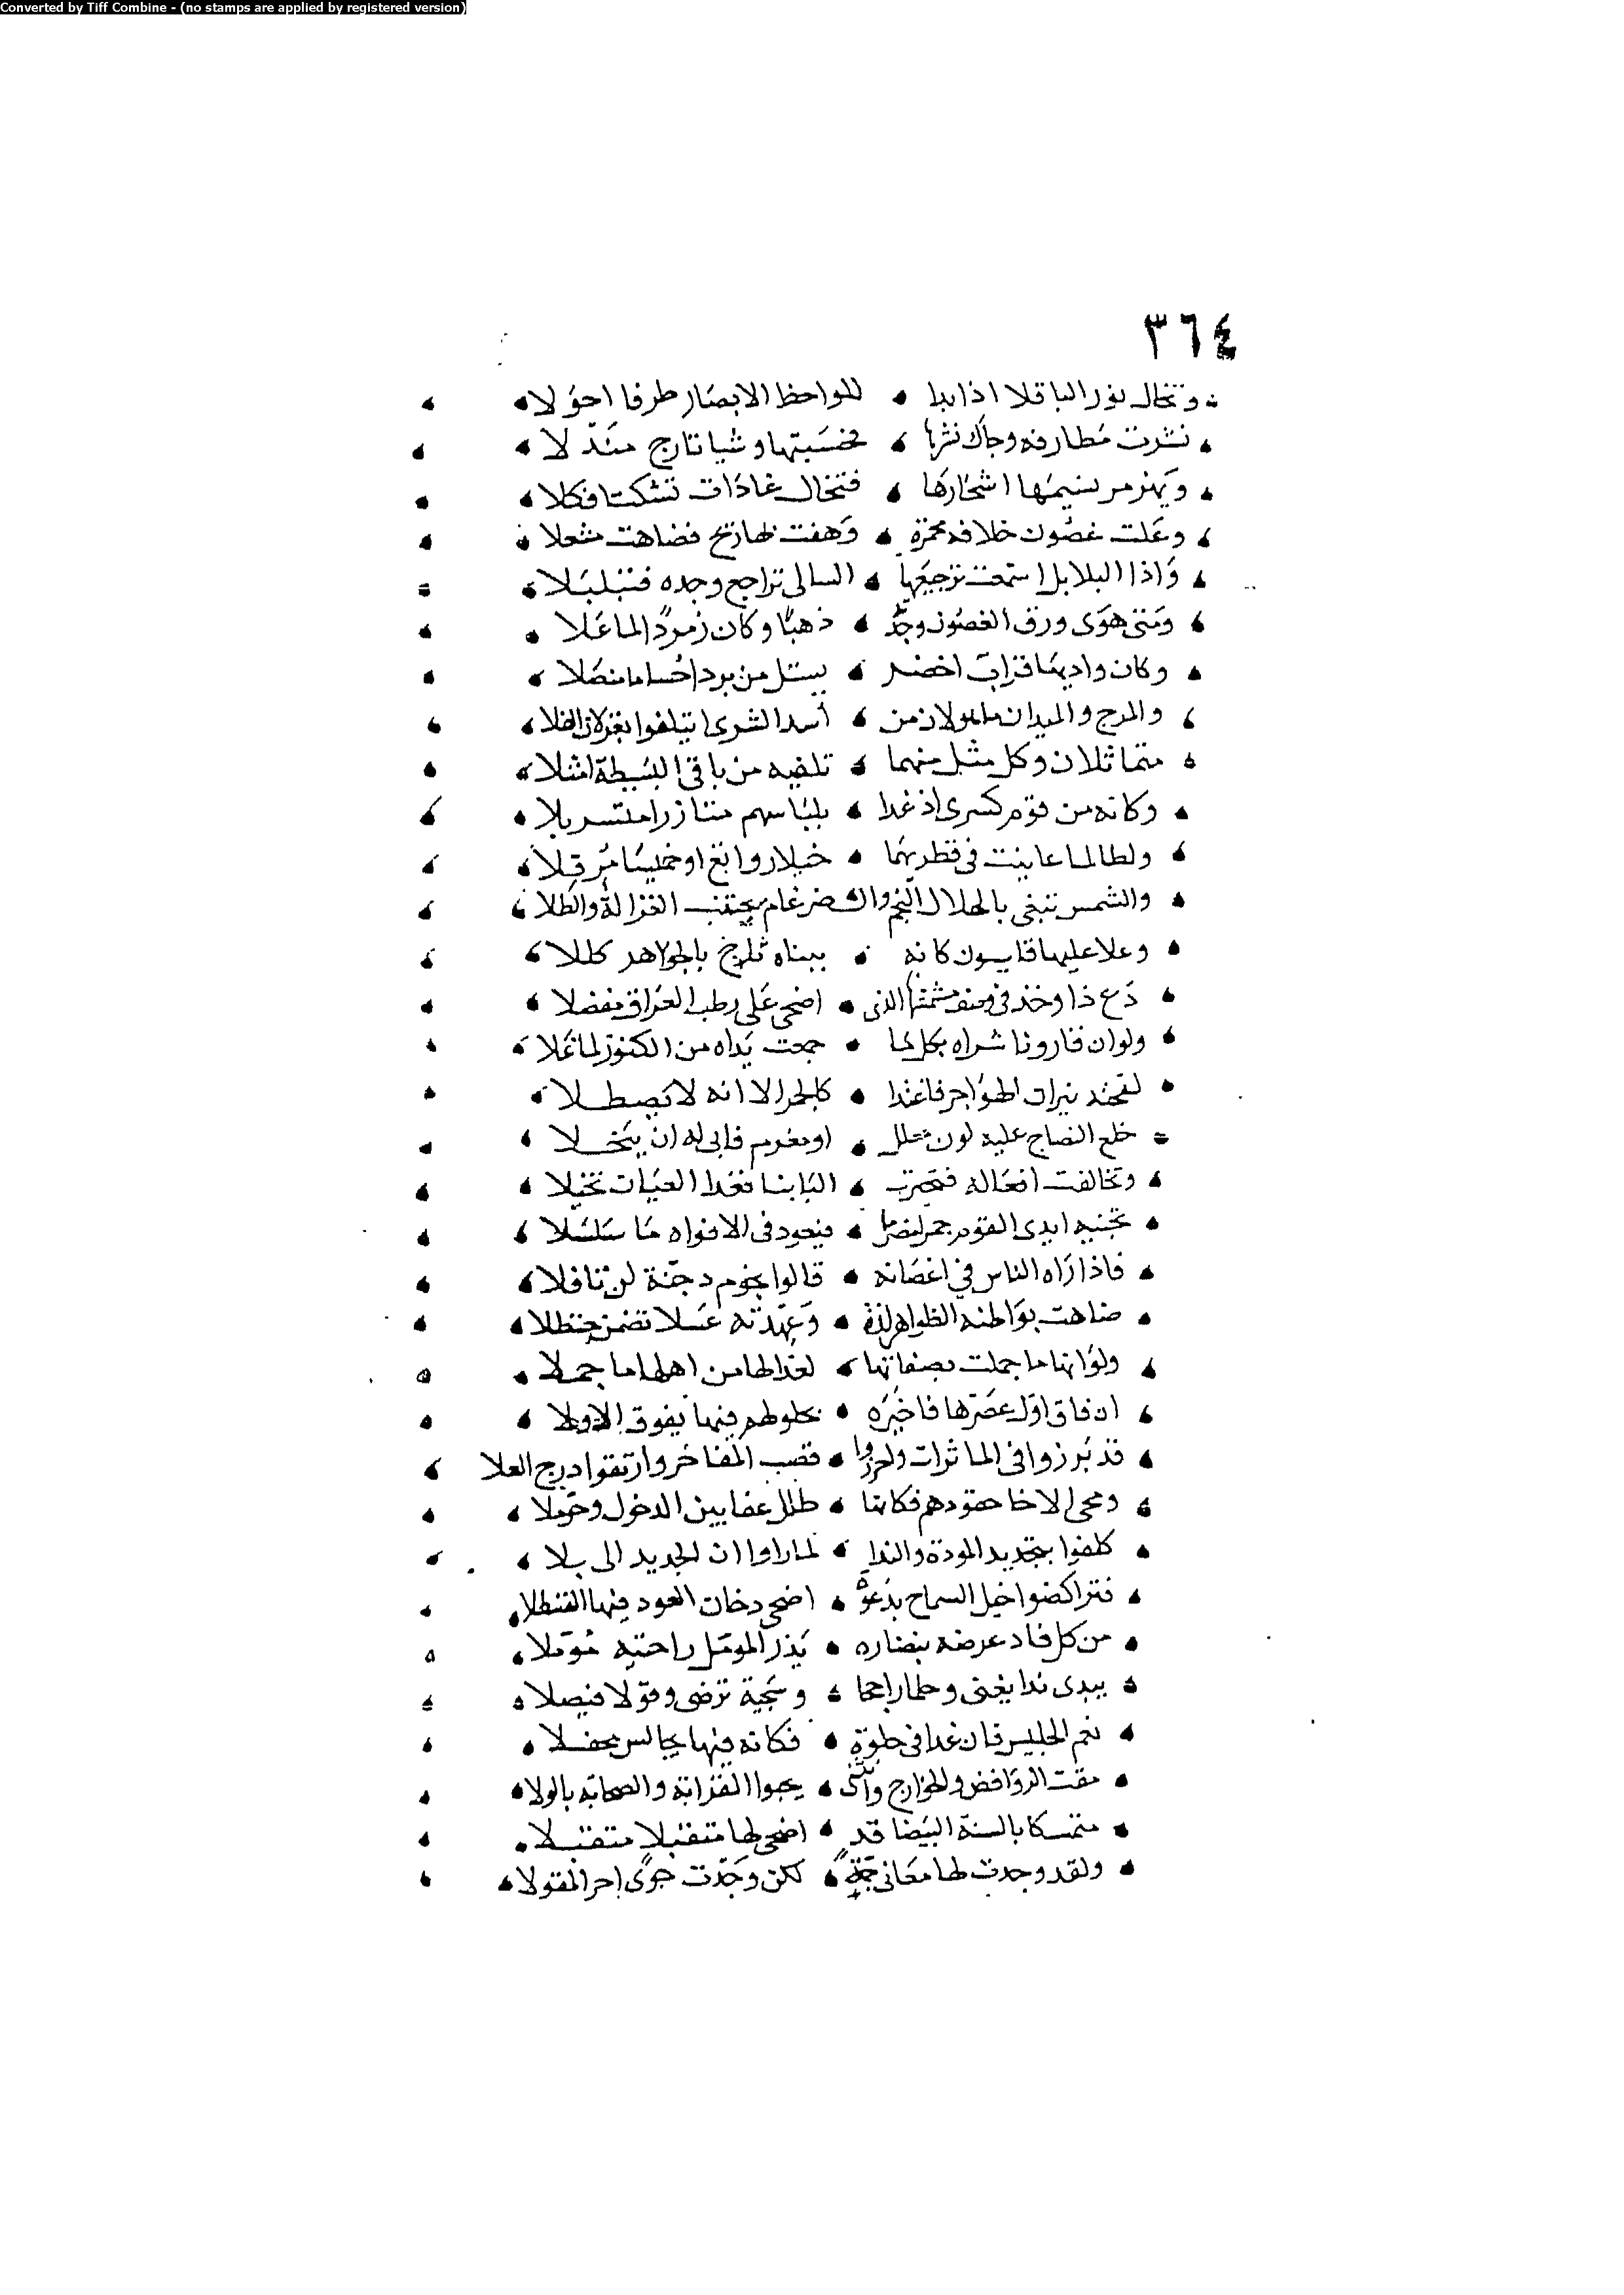 Converted by Tiff Combine - (no stamps are applied by registered version)
٣٦٤
وتخال نور الباقلا اذا بدا للواحظ الابصار طرفا احولا
نشرت مطارفه وجاك نشرها فحسبتها وشيا تارج مندلا
ويهز مر نسيمها اشجارها فتخال غادات تشكت افكلا
وعلت غصون خلافه محمرة وهفت بها ريح فضاهت مشعلا
واذا البلابل استمعت ترجيعها السالى تراجع وجده فتبلبلا
ومتى هوى ورق الغصون وجدته ذهبا وكان زمردا لما علا
وكان واديها قراب اخضر يستل من بردا حساما منصلا
والمرج والميدان من اسد الشرى بغزلان الفلا
متماثلان وكل مثل منهما تلقيه من باقى البسيطة امثلا
وكانه من قوم كسرى اذ غدا بلباسهم متازرا متسربلا
ولطالما عاينت فى قطريهما خيلا روائع او خميسا مرقلا
والشمس تبغى بالهلال النجم والضرغام يجتنب الغزالة والطلا
وعلا عليها قاسيون كانه ببناه ثلج بالجواهر كللا
دع ذا وخذ فى وصف مشمشها الذى اضحى على رطب العراق مفضلا
ولو ان قارونا شراه بكل ما جمعت يداه من الكنوز لما غلا
لفحته نيران الهواجر فاغتدا كالجمر الا انه لا يصطلا
خلع النضاج عليه لون معلل او مغرم فابى له ان ينحلا
وتخالفت افعاله فتحيرت البابنا فغدا العيان تخيلا
تجنيه ايدى القوم جمرا فيعود فى الافواه ما سلسلا
فاذا راه الناس فى اغصانه قالوا نجوم دجنة لن تافلا
ضاهت بواطنه الظواهر لذة وعهدته عسلا تضمن حنظلا
ولو انها ما جملت بصفاتها لغدا لها من اهلها ما جملا
ان فاق اول عصرها فاخيره بحلولهم فيها يفوق الاولا
قد برزوا فى الماثرات واحرزوا قصب المفاخر وارتقوا درج العلا
ومحى الاخا حقودهم فكانها طلل عفا بين الدخول وحوملا
كلفوا بتجديد المودة والندا لما راوا ان الجديد الى بلا
فتراكضوا خيل السماح بدعوة اضحى دخان العود فيها القسطلا
من كل فاد عرضه بنضاره يذر المومل راحتيه موملا
يبدى ندا يغنى وحلما راجحا وسجية ترضى وقولا فيصلا
نعم الجليس فان غدا فى خلوة فكانه فيها يجالس محفلا
مقت الروافض والخوارج وانثنى يحبوا القرابة والصحابة بالولا
متمسكا بالسنة البيضا قد اضحى لها متقبلا
ولقد وجدت لها معانى جمة لكن وجدت جوى احر المقولا